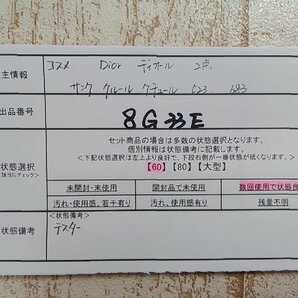 コスメ Dior ディオール 2点
主情報
サンク クルール クチュール 523 683
出品番号
8G33E
セット商品の場合は多数の状態となります。
個別情報は状態備考に記載します。
<下記状態は左上より良好で、下段右側が一番状態が低くなります。>
状態選択
【60】【80】【大型】
未開封・未使用 開封品で未使用 数回使用で状態良
汚れ・使用感、若干有り 汚れ・使用感有り 残量不明
<状態備考>
テスター
状態備考